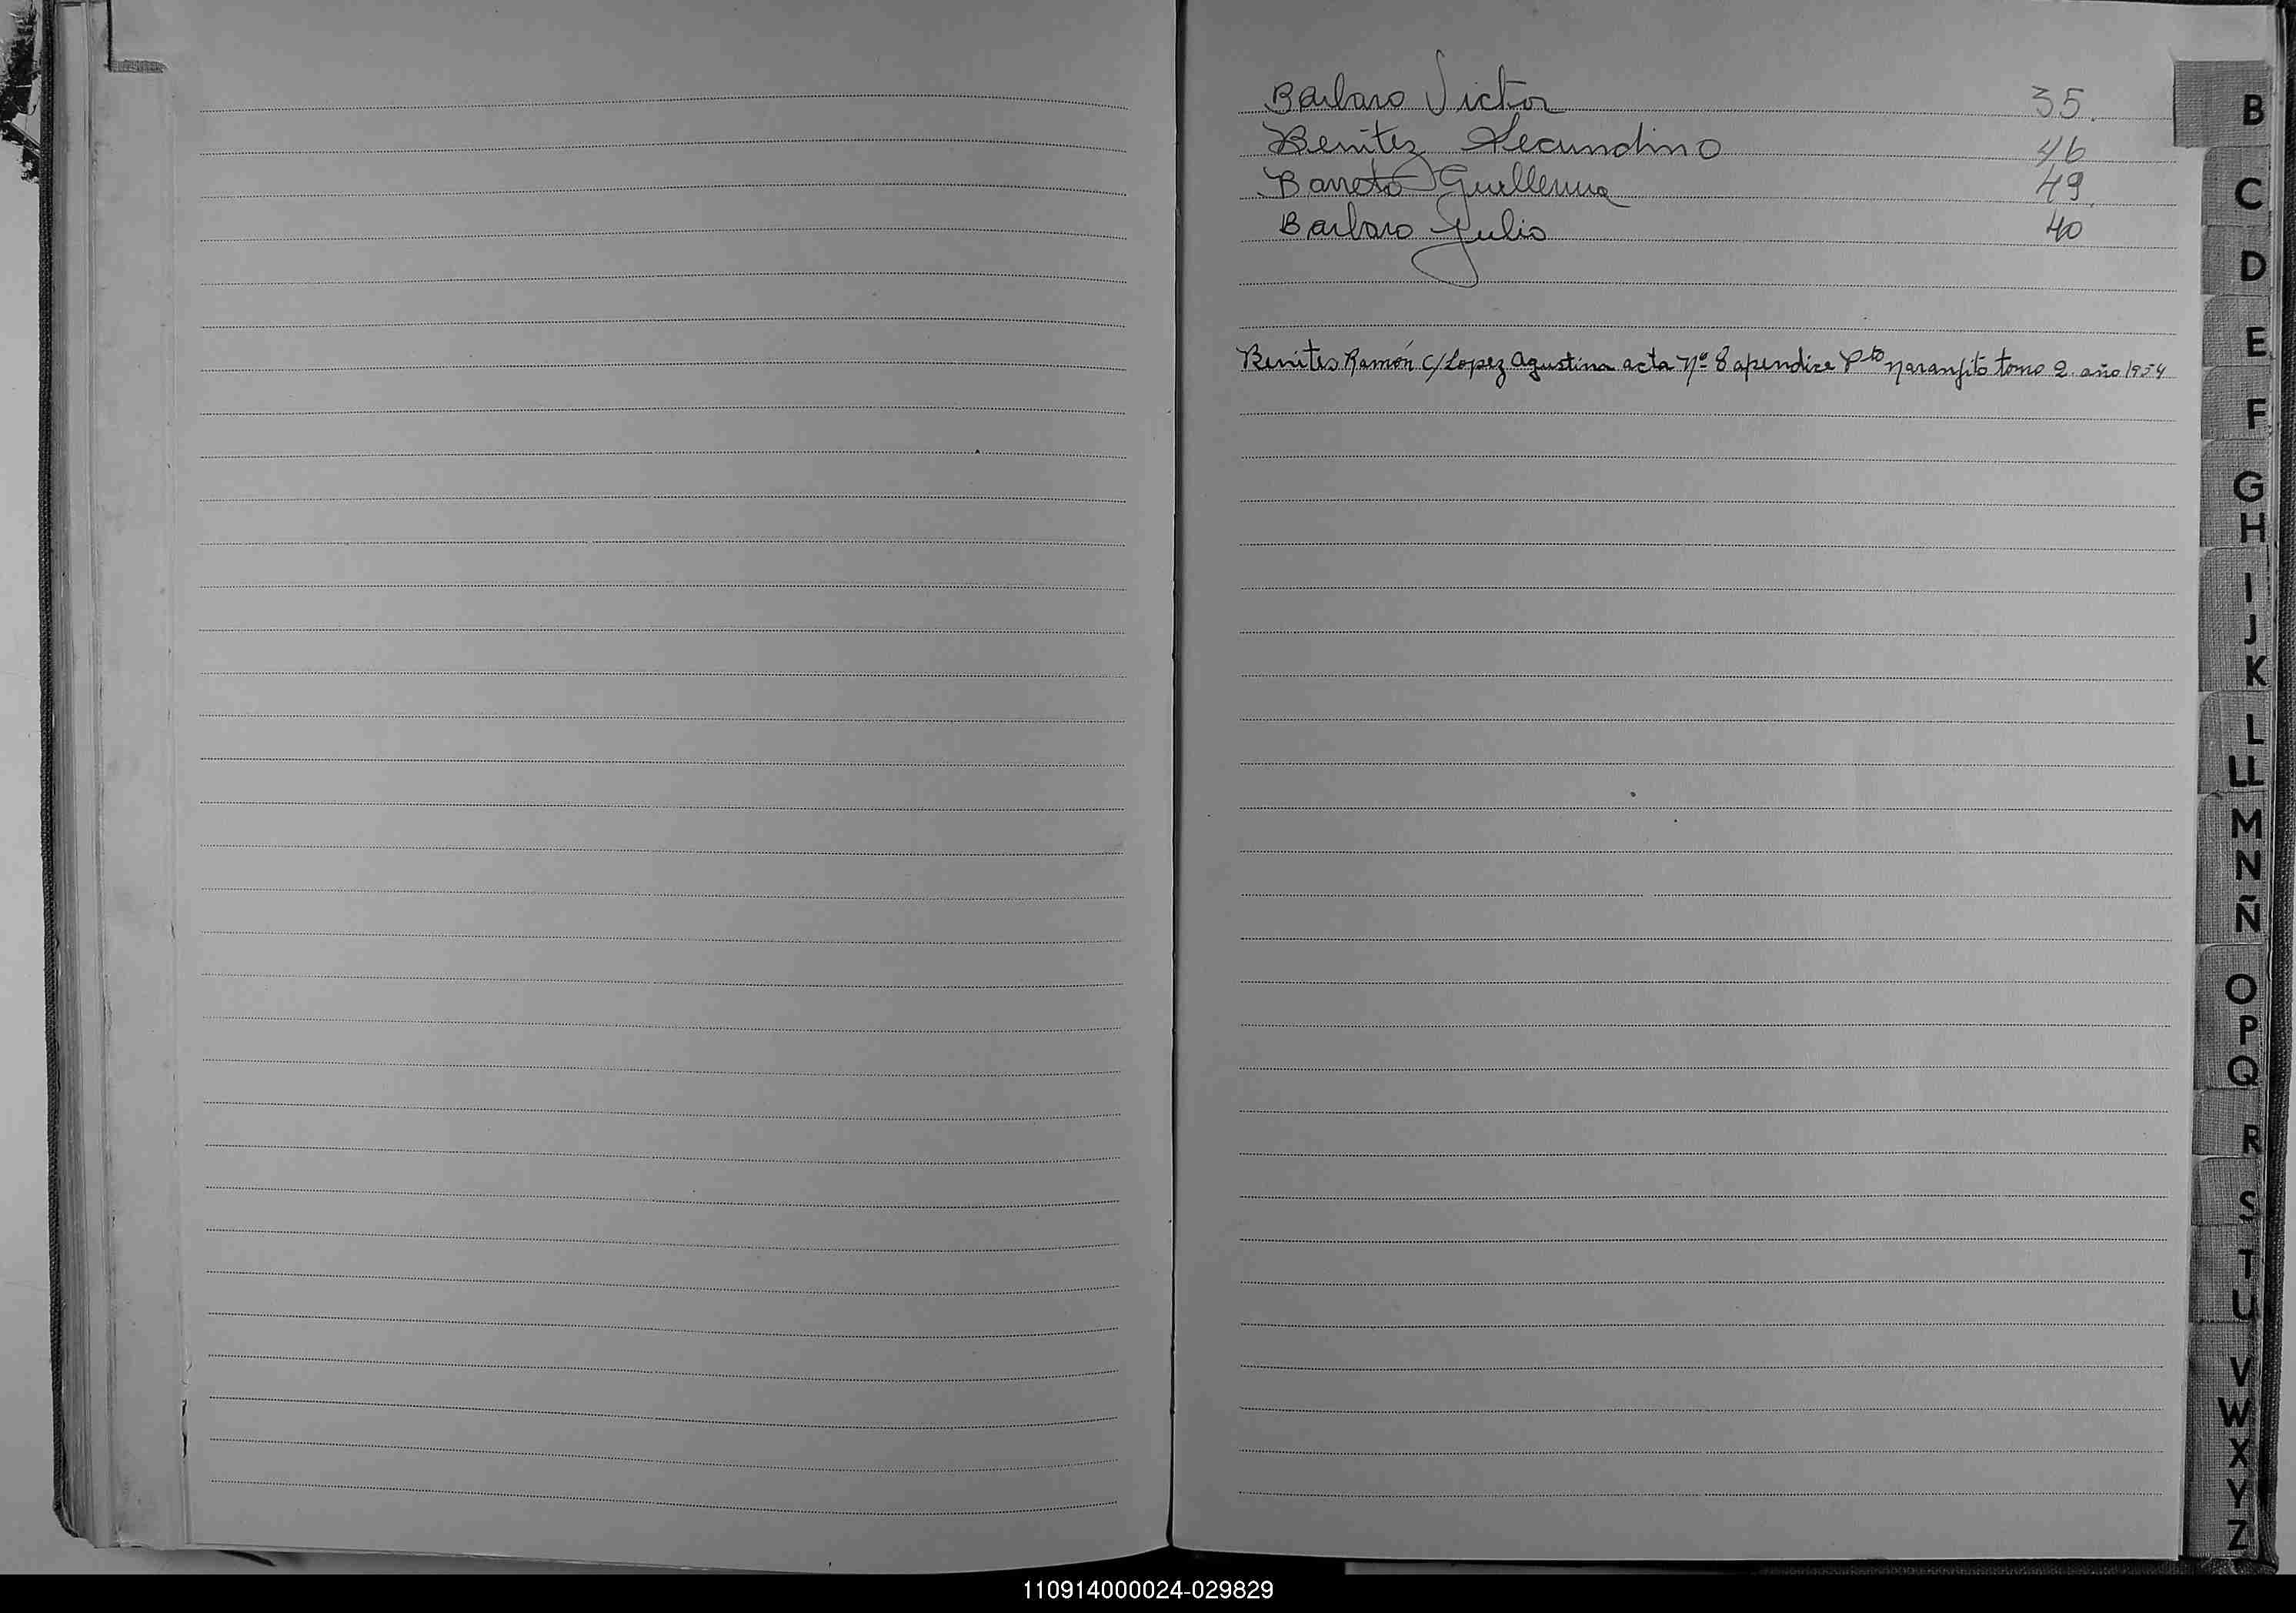 Barbaro Victor 35.
Benitez Secundino 46
Barreto Guillermo 49.
Barbaro Julio 40
Benites Ramón c/ Lopez Agustina acta Nº 8 apendice Pto naranjito tomo 2 año 1954
B
C
D
E
F
G
H
I
J
K
L
LL
M
N
Ñ
O
P
Q
R
S
T
U
V
W
X
Y
Z
110914000024-029829